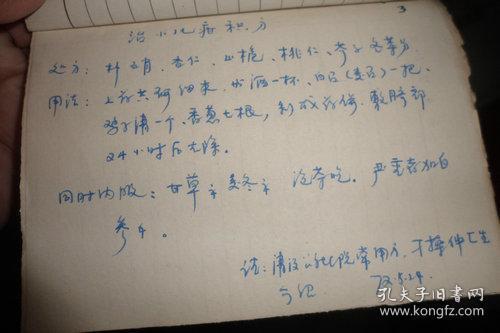 3
治小儿疳积方
处方：朴硝、杏仁、山栀、桃仁、枣子各等分
用法：上药共研细末，水酒一杯、白面（麦面）一把、
鸡子清一个、香葱七根，制成药饼，敷脐部
24小时后去除。
同时内服：甘草 麦冬 泡茶吃。严重者加白
参
注：清 公社医院常用方，
73.5.24.
孔夫子旧书网
www.kongfz.com